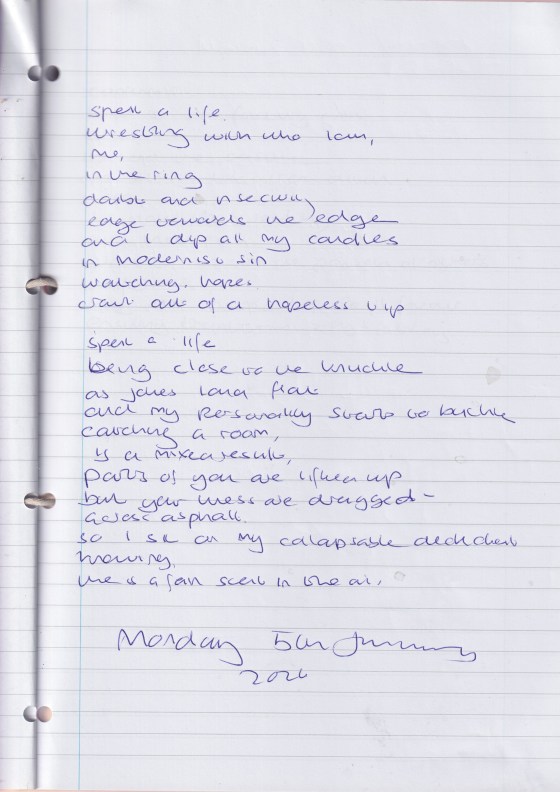 spent a life
wrestling with who I am,
me,
in the ring
doubt and insecurity
edge towards the edge
and I dip all my candles
in modernist sin
watching hopes
crawl out of a hopeless
spent a life
being close to the knuckle
as jokes land flat
and my personality starts to buckle
catching a room,
is a mixed result,
parts of you are lifted up
but your mess are dragged -
across asphalt.
so I sit on my colapsable deckchair
knowing,
there is a faint scent in the air,
Monday 5th January
2026